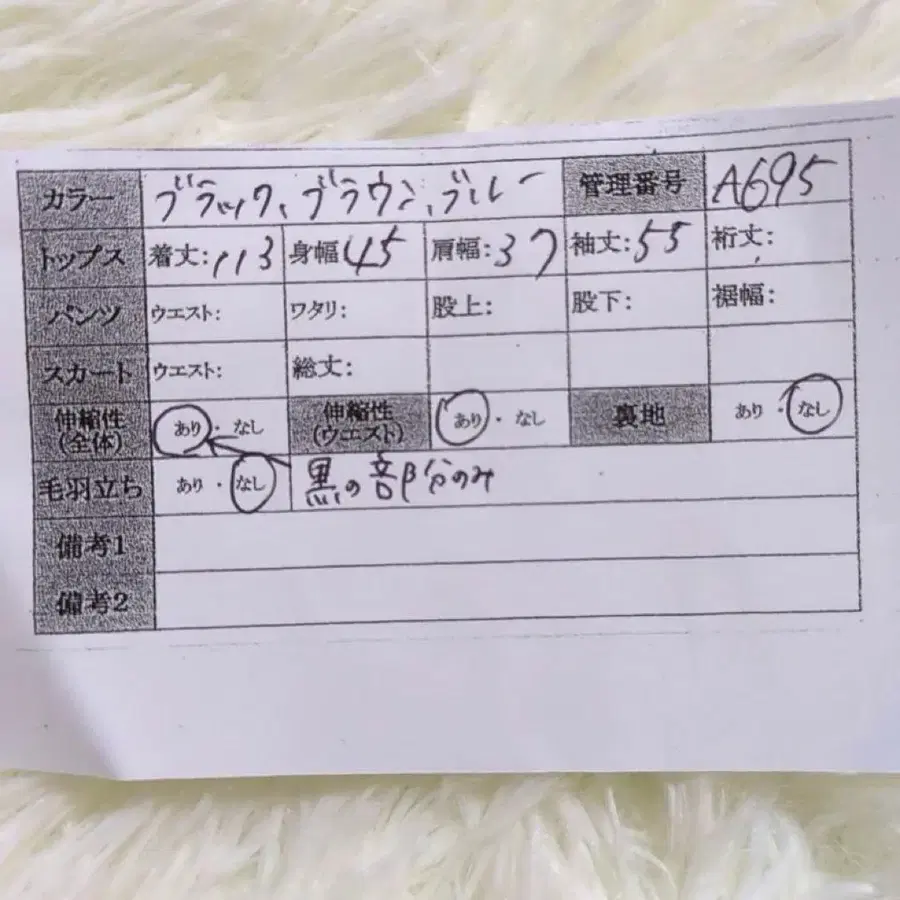 カラー ブラック、ブラウン、ブルー 管理番号 A695
トップス 着丈:113 身幅:45 肩幅:37 袖丈:55 裄丈:
パンツ ウエスト: ワタリ: 股上: 股下: 裾幅:
スカート ウエスト: 総丈:
伸縮性(全体) あり・なし 伸縮性(ウエスト) あり・なし 裏地 あり・なし
毛羽立ち あり・なし 黒の部分のみ
備考1
備考2